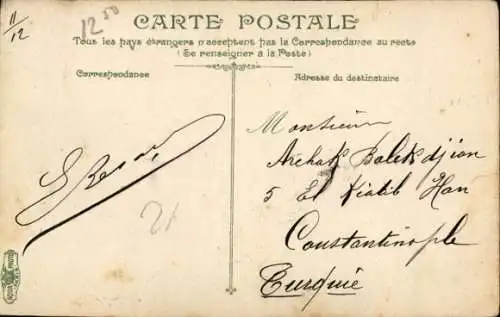 11/12
12 50
CARTE POSTALE
Tous les pays étrangers n'acceptent pas la Correspondance au recto
(Se renseigner à la Poste)
Correspondance
Adresse du destinataire
Monsieur
Archak Balekdjian
5 El Kiatib Han
Constantinople
Turquie